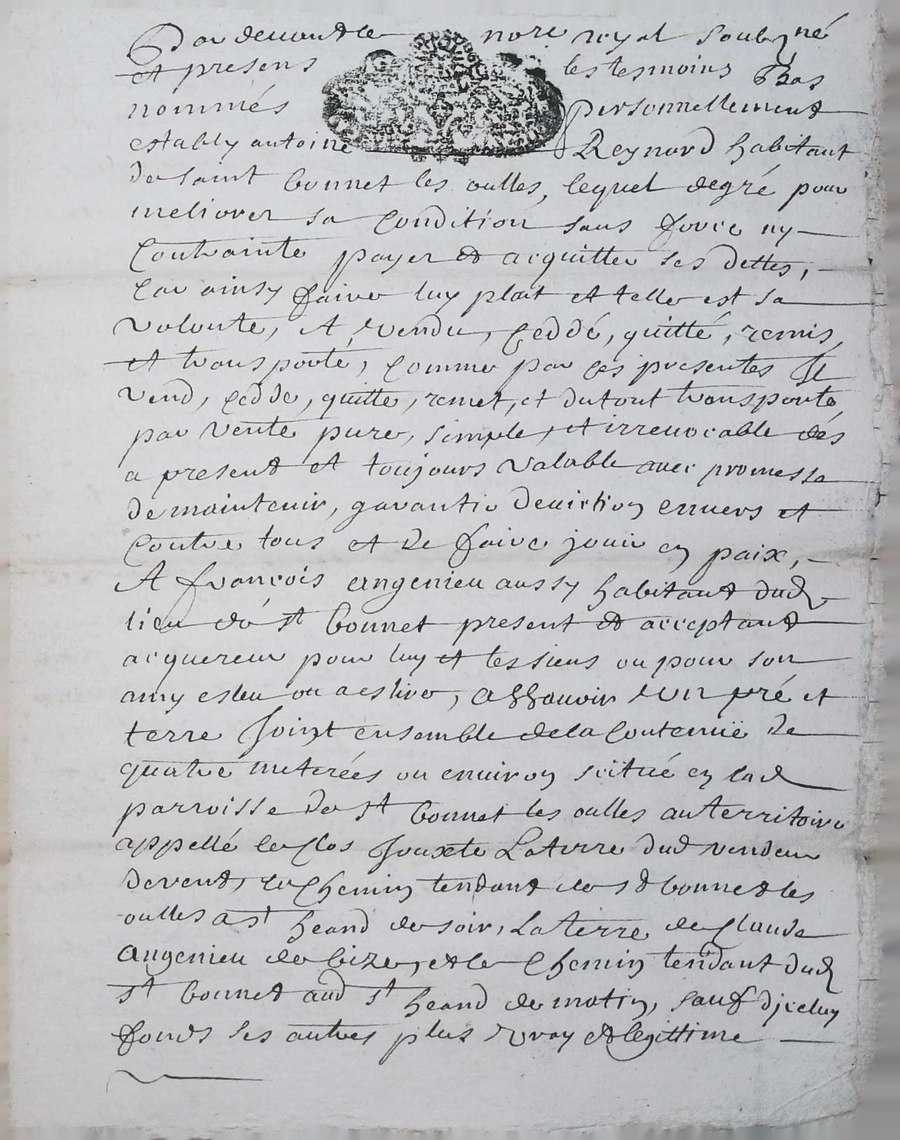 Par devant le nore royal soubzné
et presens les tesmoins bas
nommés personnellement
estably antoine Reynard habitant
de saint bonnet les oulles, lequel degré pour
meliorer sa condition sans force ny
Contrainte payer et acquitter ses dettes,
Car ainsy faire luy plait et telle est sa
volonté, A vendu, ceddé, quitté, remis,
et transporté, Comme par ces presentes Il
vend, cedde, quitte, remet, et dutout transporte
par vente pure, simple, et irrevocable dés
a present et toujours valable avec promesse
de maintenir, garantir deviction envers et
Contre tous et de faire jouir en paix,
A françois angenieu aussy habitant dud
lieu de st bonnet present et acceptant
acquereur pour luy et les siens ou pour son
amy esleu ou a eslire, assavoir Un pré et
terre Joint ensemble de la Contenüe de
quatre meterées ou environ scitué en lad
parroisse de st bonnet les oulles au territoire
appellé le Clos Jouxte La terre dud vendeur
devent, le Chemin tendant de st bonnet les
oulles a st heand de soir, La terre de Claude
Angenieu de bize, et le Chemin tendant dud
st bonnet aud st heand de matin, sauf diceluy
fonds ses autres plus vray et legittime